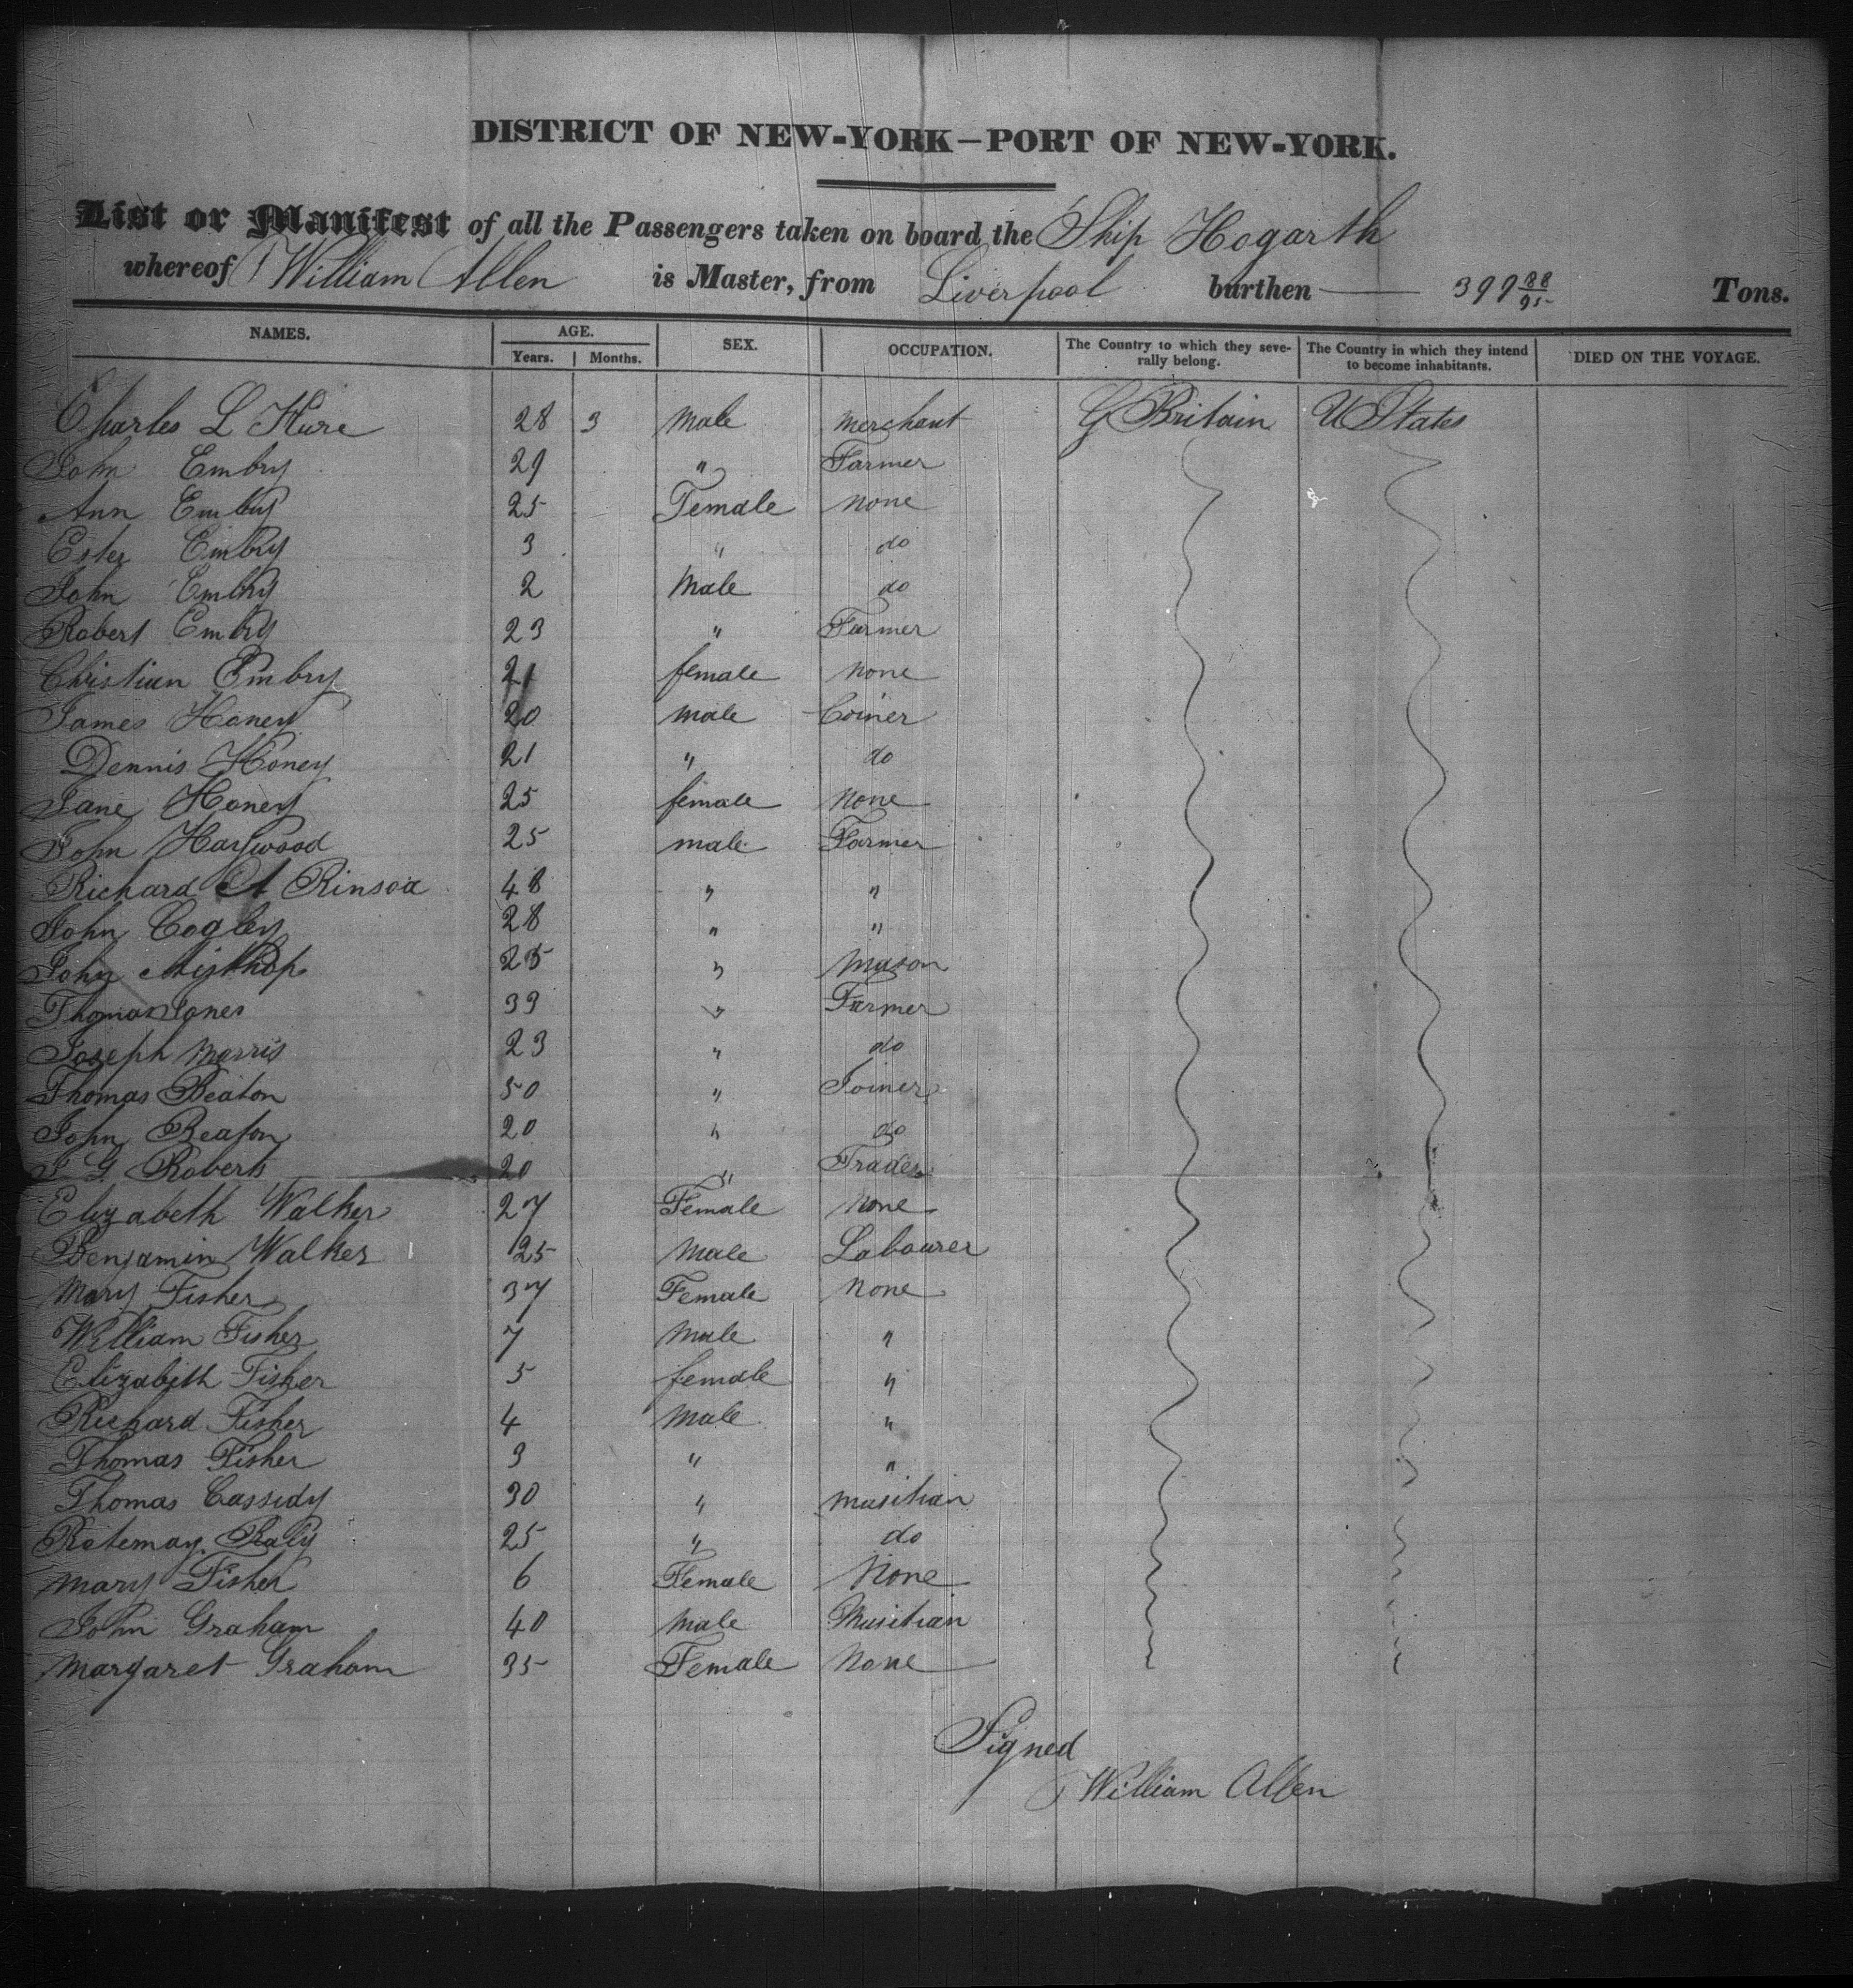 DISTRICT OF NEW-YORK—PORT OF NEW-YORK.
List or Manifest of all the Passengers taken on board the Ship Hogarth
whereof William Allen is Master, from Liverpool burthen 399 88/95 Tons.
NAMES. AGE. Years. Months. SEX. OCCUPATION. The Country to which they severally belong. The Country in which they intend to become inhabitants. DIED ON THE VOYAGE.
Charles L Hure 28 3 Male Merchant G Britain U States
John Embry 29 " Farmer
Ann Embry 25 Female None
Ester Embry 3 " do
John Embry 2 Male do
Robert Embry 23 " Farmer
Christian Embry 21 female None
James Honey 20 Male Coiner
Dennis Honey 21 " do
Jane Honey 25 female None
John Haywood 25 male Farmer
Richard 48 " "
John Cogley 28 " "
John 25 " Mason
Thomas Jones 33 " Farmer
Joseph Morris 23 " do
Thomas Beaton 50 " Joiner
John Beaton 20 " do
J G Roberts 20 " Trader
Elizabeth Walker 27 Female None
Benjamin Walker 25 Male Labourer
Mary Fisher 37 Female None
William Fisher 7 Male "
Elizabeth Fisher 5 female "
Richard Fisher 4 Male "
Thomas Fisher 3 " "
Thomas Cassidy 30 " Musitian
25 " do
Mary Fisher 6 Female None
John Graham 40 Male Musitian
Margaret Graham 35 Female None
Signed
William Allen